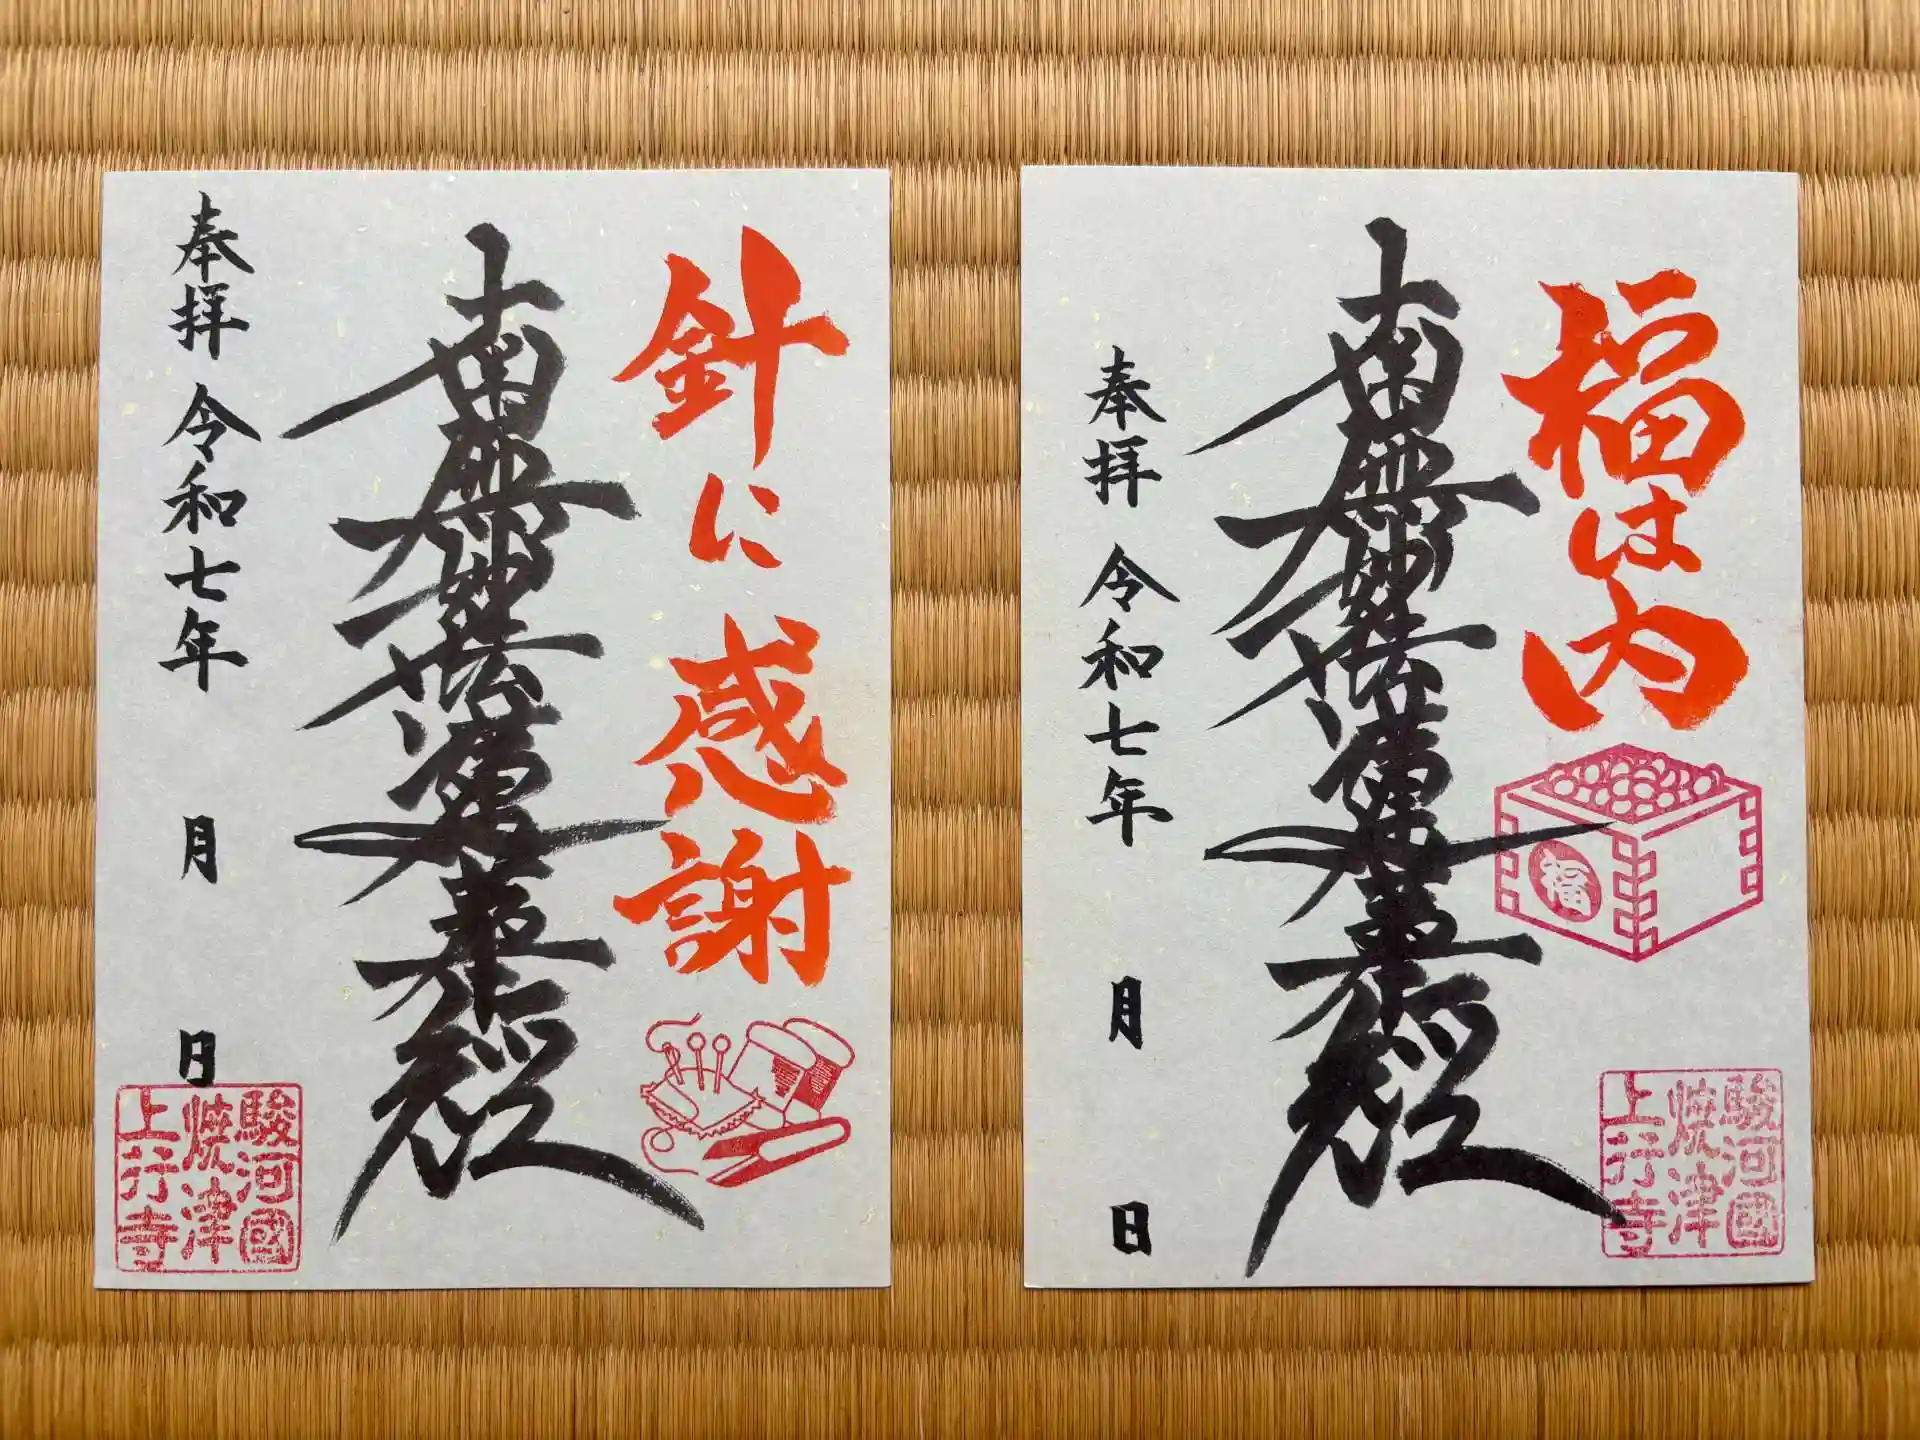 針に感謝
南無妙法蓮華経
奉拝 令和七年 月 日
駿河國
焼津
上行寺
福は内
福
南無妙法蓮華経
奉拝 令和七年 月 日
駿河國
焼津
上行寺